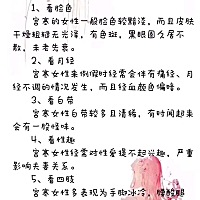 1、看脸色
宫寒的女性一般脸色较黯淡，而且皮肤
干燥粗糙无光泽，有色斑，黑眼圈么屡不
散，未老先衰。
2、看月经
宫寒女性来例假时经常会伴有痛经、月
经不调的情况发生，而且经血颜色偏暗。
3、看白带
宫寒女性白带较多且清稀，有时闻起来
会有一股怪味。
4、看性趣
宫寒女性经常对性爱提不起兴趣，严重
影响夫妻关系。
5、看四肢
宫寒女性多表现为手脚冰冷，腰酸腿